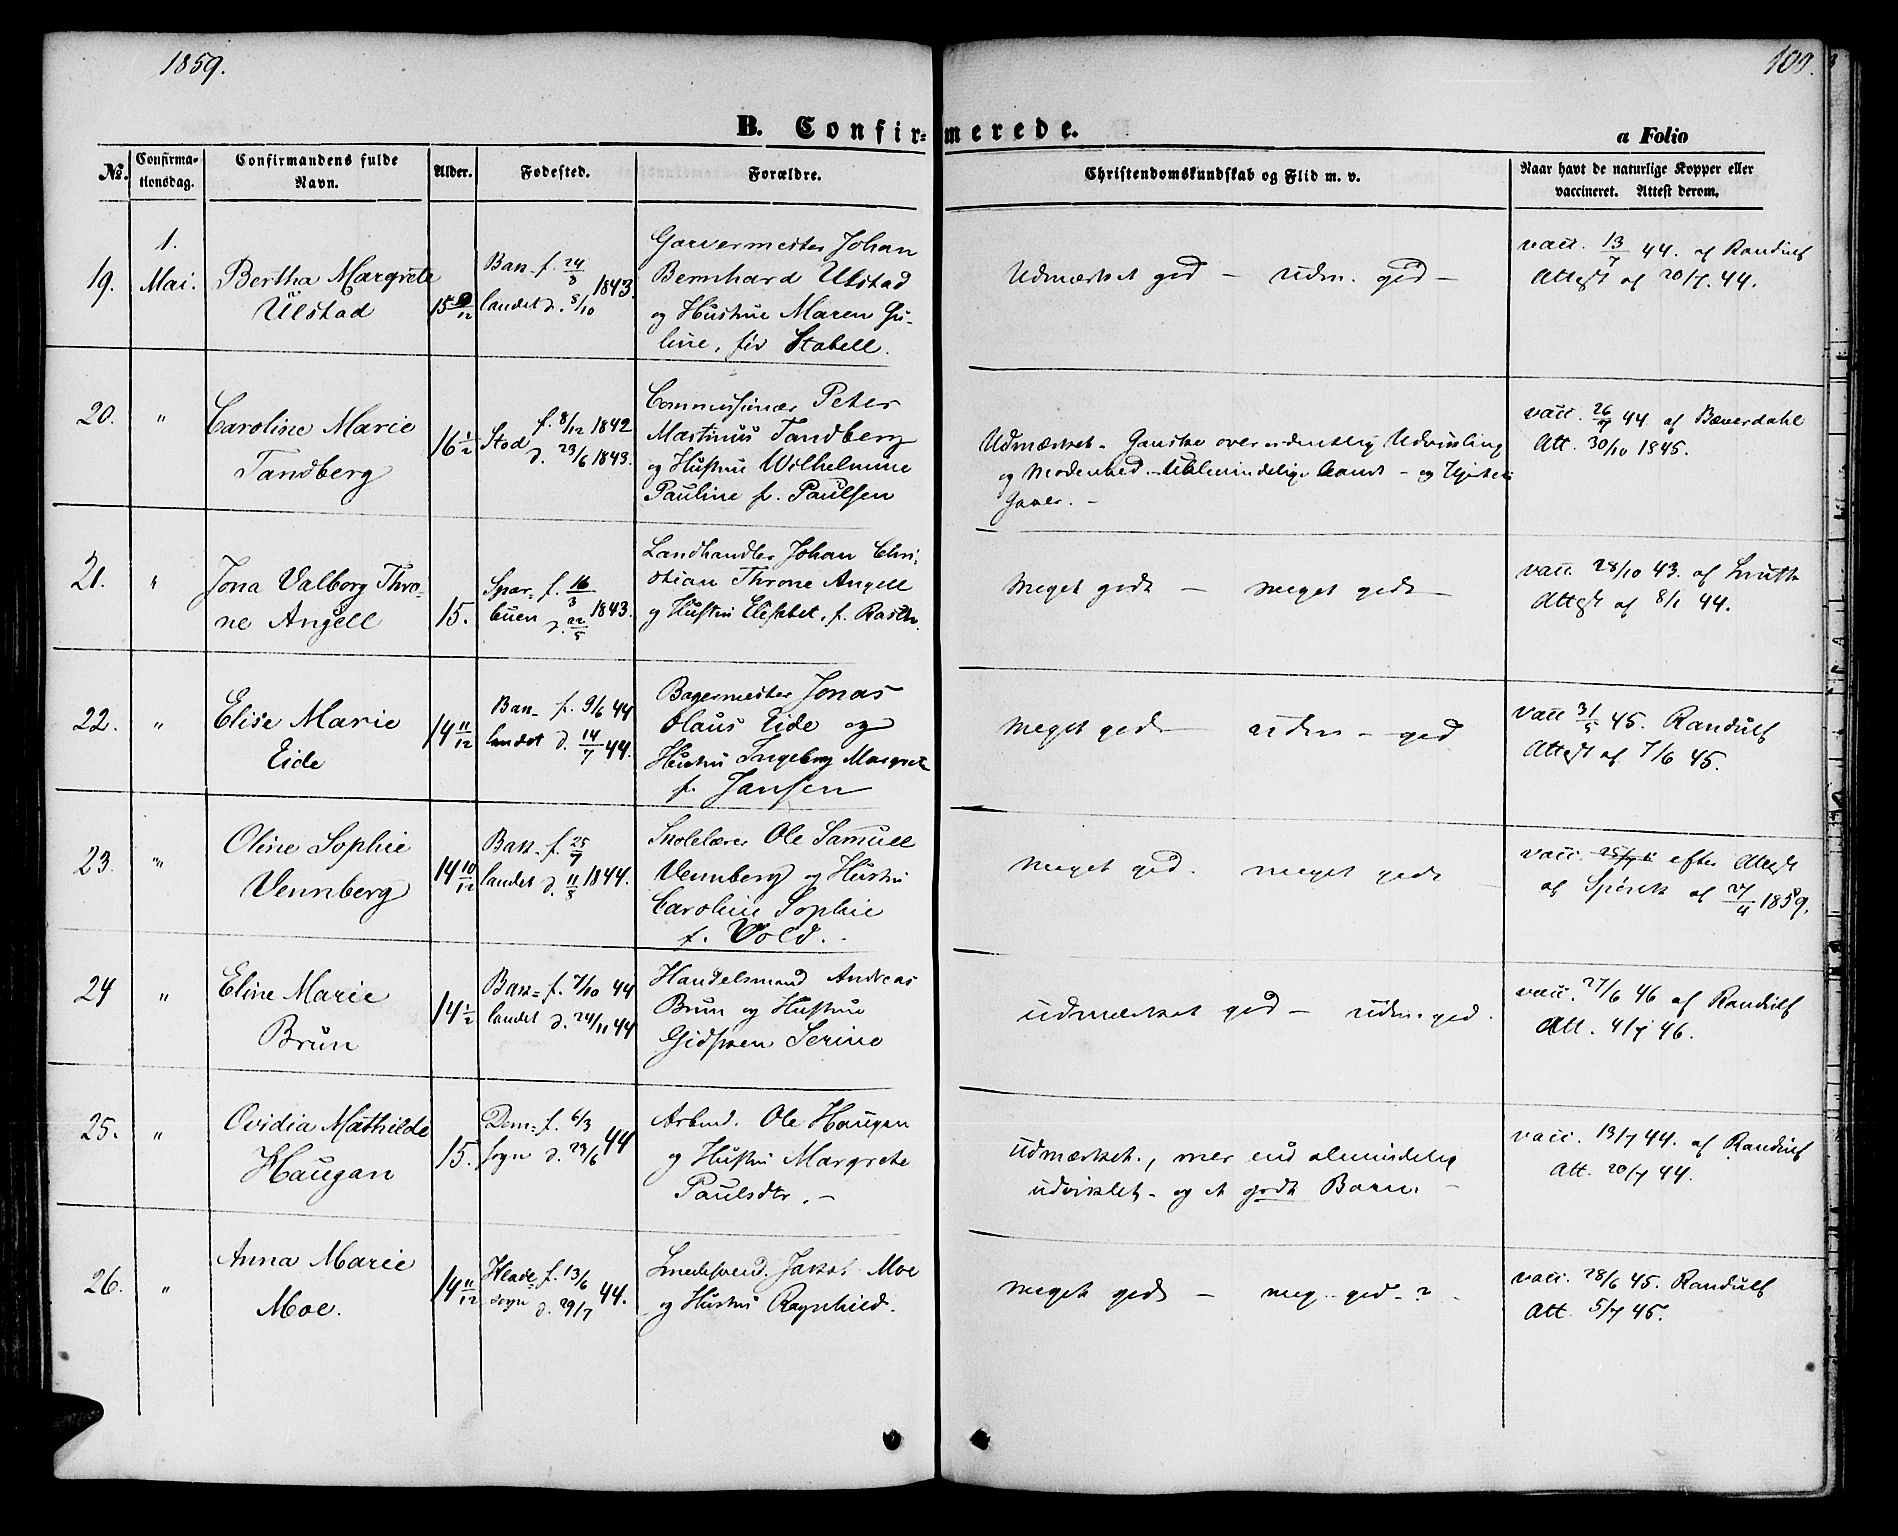 1859.
100.
B. Confirmerede.
a Folio
No.
Confirmationsdag.
Confirmandens fulde Navn.
Alder.
Fødested.
Forældre.
Christendomskundskab og Flid m. v.
Naar havt de naturlige Kopper eller vaccineret. Attest derom.
19.
1. Mai.
Bertha Margrete
Ulstad
15 9/12
Bak- f. 24/8
landet d. 8/10 1843.
Garvermester Johan
Bernhard Ulstad
og Hustrue Maren Gu-
line, fød Stabell.
Udmærket god – udm. god –
vacc. 13/7 44. af Randulf
Attest af 20/7. 44.
20.
"
Caroline Marie
Tandberg
16 1/2
Stod
f. 8/12 1842
d. 23/6 1843.
Commissionær Peter
Martinus Tandberg
og Hustru Wilhelmine
Pauline f. Paulsen
Udmærket. Ganske overordentlig Udvikling
og Modenhed. – Ualmindelige Aands – og Hjertes
Gaver. –
vacc. 26/7 44 af Bæverdahl
Att. 30/10 1845.
21.
"
Jona Valborg Thro-
ne Angell
15.
Spar- f. 16/3
buen d. 22/5 1843.
Landhandler Johan Chri-
stian Throne Angell
og Hustru Elisabet, f. Rasch.
Meget godt – meget godt –
vacc. 28/10 43. af
Attest af 8/1 44.
22.
"
Elise Marie
Eide
14 11/12
Bak- f. 9/6 44
landet d. 14/7 44.
Bagermester Jonas
Olaus Eide og
Hustru Ingeborg Margrete
f. Jansen
Meget godt – udm. – god
vacc 31/5 45. Randulf
Attest af 7/6 45.
23.
"
Oline Sophie
Vennberg
14 10/12
Bak- f. 25/7
landet d. 11/8 1844.
Skolelærer Ole Samuel
Vennberg og Hustru
Caroline Sophie
f. Vold.
meget god. meget godt –
vacc. efter Attest
af af 27/4 1859.
24
"
Eline Marie
Brun
14 1/2
Bak- f. 7/10 44
landet d. 24/11 44
Handelsmand Andreas
Brun og Hustrue
Gidsken Serine
udmærket god – udm. god.
vacc. 27/6 46 af Randulf
Att. 4/7 46.
25.
"
Ovidia Mathilde
Haugan
15.
Dom- f. 6/3
sogn d. 23/6 44
Arbmd. Ole Haugan
og Hustru Margrete
Paulsdtr. –
udmærket., mer end almindelig
udviklet – og et godt Barn. –
vacc. 13/7 44. af Randulf
Att. 20/7 44.
26.
"
Anna Marie
Moe.
14 11/12
Hlade- f. 13/6
sogn d. 29/7 44.
Smedesvend. Jakob Moe
og Hustru Ragnhild.
meget godt – meg. god. ?
vacc. 28/6 45. Randulf
Att. 5/7 45.